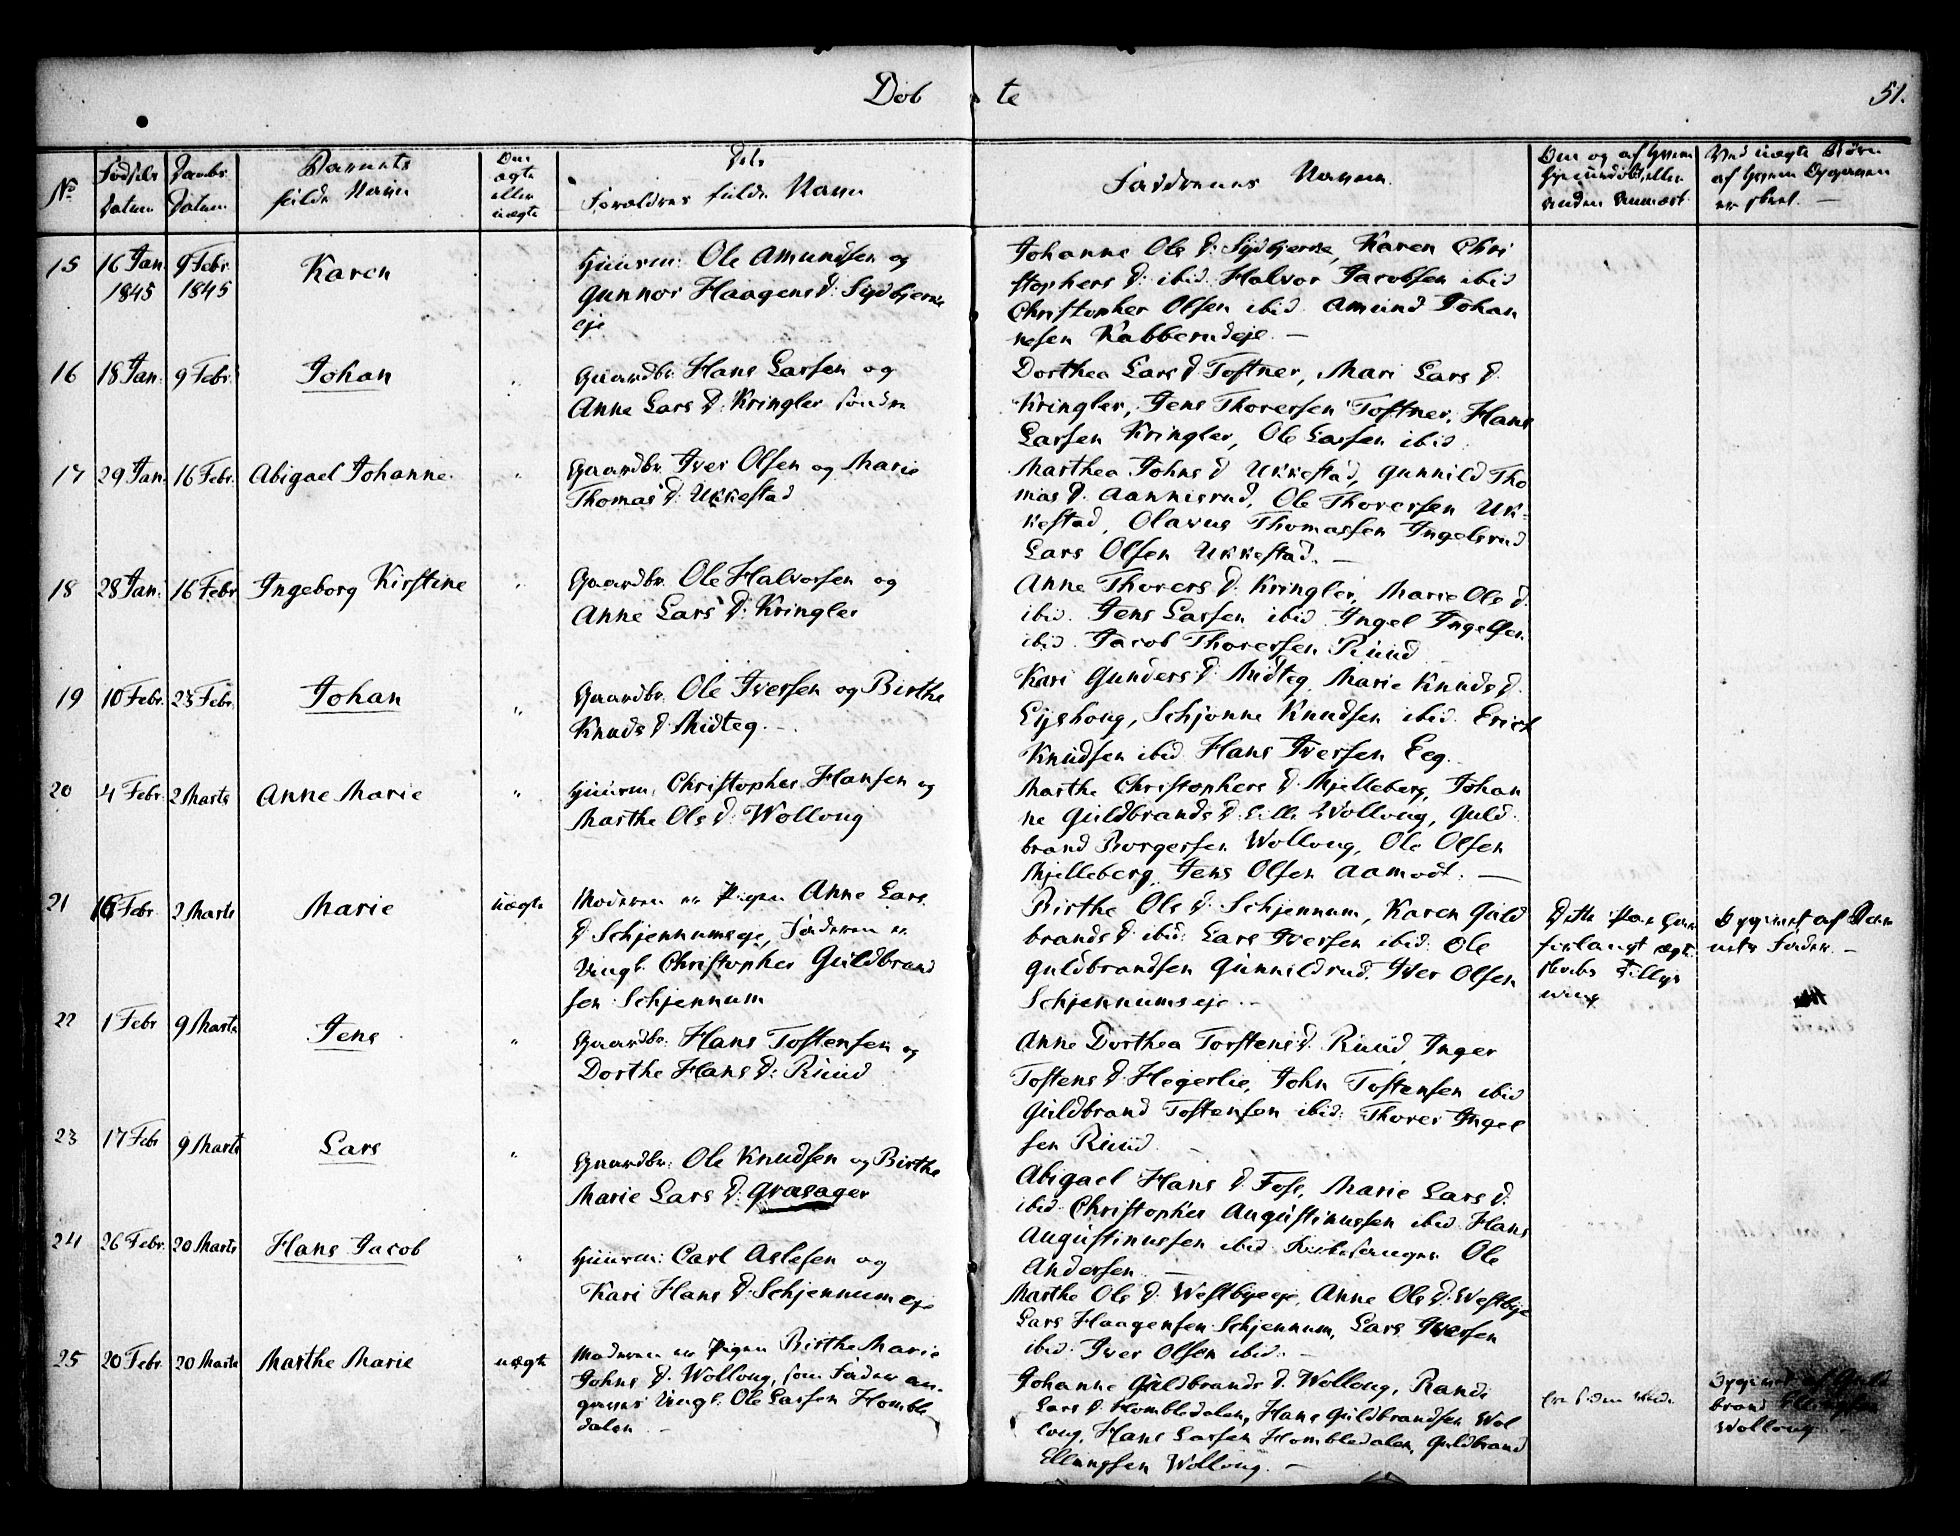 Døb te 51.
No
Fødsels Datum
Daabs Datum
Barnets fulde Navn
Om ægte eller uægte
Dets Forældres fulde Navn
Faddernes Navne
Om og af hvem
Ved uægte Børn af hvem Opgaven er skeet. —
15 16 Jan. 1845 9 Febr. 1845 Karen
Huusm: Ole Amundsen og
Gunnor Haagens D: Sydbjerke
eje
Johanne Ols D: Sydbjerke, Karen Chri
stophers D: ibid. Halvor Jacobsen ibid
Christopher Olsen ibid. Amund Johan
nesen Kabberudeje. —
16 18 Jan. 9 Febr. Johan "
Gaardbr: Hans Larsen og
Anne Lars D: Kringler søndre
Dorthea Lars D Toftner, Mari Lars D.
Kringler, Jens Thoresen Toftner, Hans
Larsen Kringler, Ole Larsen ibid.
17 29 Jan. 16 Febr. Abigael Johanne. "
Gaardbr. Iver Olsen og Marie
Thomas D: Ukkestad
Marthea Johns D Ukkestad, Gunnild Tho
mas D. Aannisrud, Ole Thoresen Uk-
kestad, Olavus Thomassen Ingelsrud
Lars Olsen Ukkestad. —
18 28 Jan. 16 Febr Ingeborg Kirstine "
Gaardbr. Ole Halvorsen og
Anne Lars D: Kringler
Anne Thorers D: Kringler, Marie Ols D.
ibid. Jens Larsen ibid Ingel Ingelsen
ibid. Jacob Thoresen Ruud
19 10 Febr. 23 Febr. Johan "
Gaardbr. Ole Iversen og Birthe
Knuds D Midteg. —
Kari Gunders D. Midteg, Marie Knuds D.
Ejshoug, Schjønne Knudsen ibid. Erich
Knudsen ibid Hans Iversen Eeg.
20 4 Febr. 2 Marts Anne Marie "
Huusm: Christopher Hansen og
Marthe Ols D: Wolloug
Marthe Christophers D. Mjelleberg, Johan
ne Guldbrands D. Wolloug, Guld
brand Borgersen Wolloug, Ole Olsen
Mjelleberg, Jens Olsen Aamodt. —
21 16 Febr. 2 Marts Marie uægte
Moderen er Pigen Anne Lars
D Schjennumseje, Faderen er
Ungk. Christopher Guldbrand
sen Schjennum
Birthe Ols D. Schjennum, Karen Guld
brands D ibid: Lars Iversen ibid: Ole
Guldbrandsen Gunnildrud. Iver Olsen
Schjennumseje. —
Dette Par har
forlangt ægt
skabs Tillys
ning
Opgivet af Bar
nets Fader. —
22 1 Febr 9 Marts Jens "
Gaardbr: Hans Tostensen og
Dorthe Hans D: Ruud
Anne Dorthea Torstens D. Ruud, Inger
Tostens D. Hegerlie, John Tostensen ibid
Guldbrand Tostensen ibid: Thorer Ingel
sen Ruud. —
23 17 Febr 9 Marts Lars "
Gaardbr: Ole Knudsen og Birthe
Marie Lars D: Græsager
Abigael Hans D. Foss, Marie Lars D.
ibid Christopher Augustinussen ibid Hans
Augustinussen ibid. Ole
Andersen —
24 26 Febr. 20 Marts Hans Jacob "
Huusm: Carl Aslesen og
Kari Hans D: Schjennumeje
Marthe Ols D: Westbyeeje, Anne Ols D: Westbye
Lars Haagensen Schjennum, Lars Iversen
ibid. Iver Olsen ibid. —
25 20 Febr. 20 Marts Marthe Marie uægte
Moderen er Pigen Birthe Marie
Johns D. Wolloug, som Fader an-
gives Ungk. Ole Larsen Homble
dalen —
Johanne Guldbrands D. Wolloug, Rande
Lars D. Hombledalen, Hans Guldbrandsen Wol
loug, Hans Larsen Hombledalen, Guldbrand
Ellingsen Wolloug. —
Opgivet af Guld
brand Ellingsen
Wolloug —